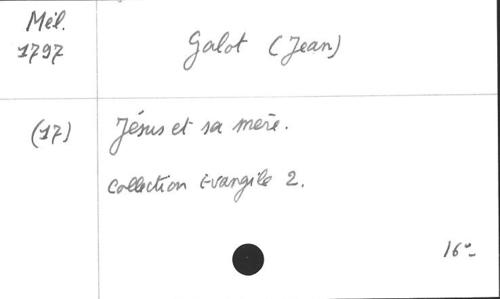 Mél.
1797
Galot (Jean)
(17)
Jésus et sa mère.
Collection Evangile 2.
16°